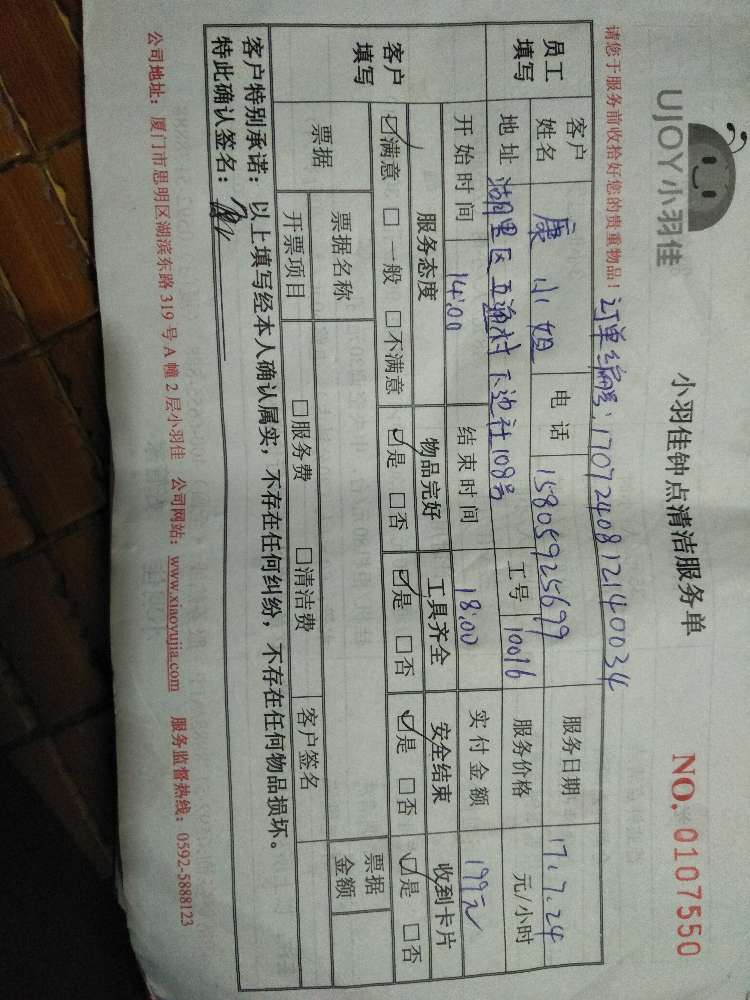 UJOY小羽佳
小羽佳钟点清洁服务单
NO. 0107550
请您于服务前收拾好您的贵重物品！
订单编号：170724081214400034
员工填写
客户姓名 康小姐 电话 15805925699 服务日期 17.7.24
地址 湖里区五通村下边社108号 工号 10016 服务价格 元/小时
开始时间 14:00 结束时间 18:00 实付金额 199元
客户填写
服务态度 物品完好 工具齐全 安全结束 收到卡片
☑满意 □一般 □不满意 ☑是 □否 ☑是 □否 ☑是 □否 ☑是 □否
票据 票据名称 票据金额
开票项目 □服务费 □清洁费 客户签名
客户特别承诺：以上填写经本人确认属实，不存在任何纠纷，不存在任何物品损坏。
特此确认签名：
公司地址：厦门市思明区湖滨东路319号A幢2层小羽佳 公司网站：www.xiaoyujia.com 服务监督热线：0592-5888123